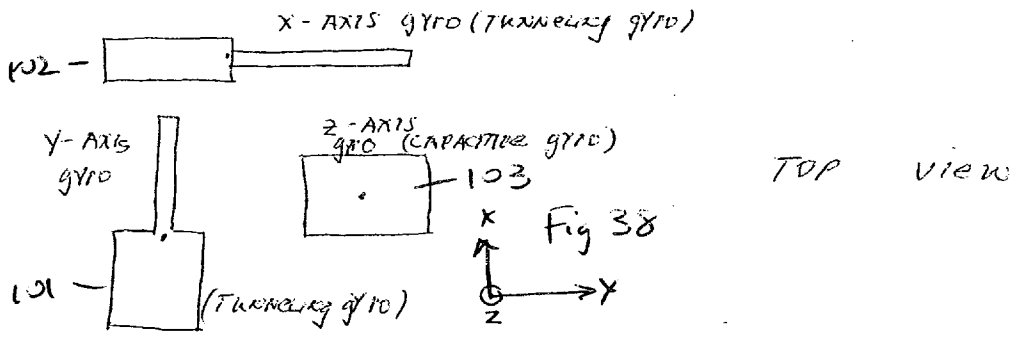 X - AXIS gyro (TUNNELING gyro)
102
Y - AXIS
gyro
Z - AXIS
gyro (CAPACITIVE gyro)
103
TOP view
X
Fig 38
101
(TUNNELING gyro)
Y
Z